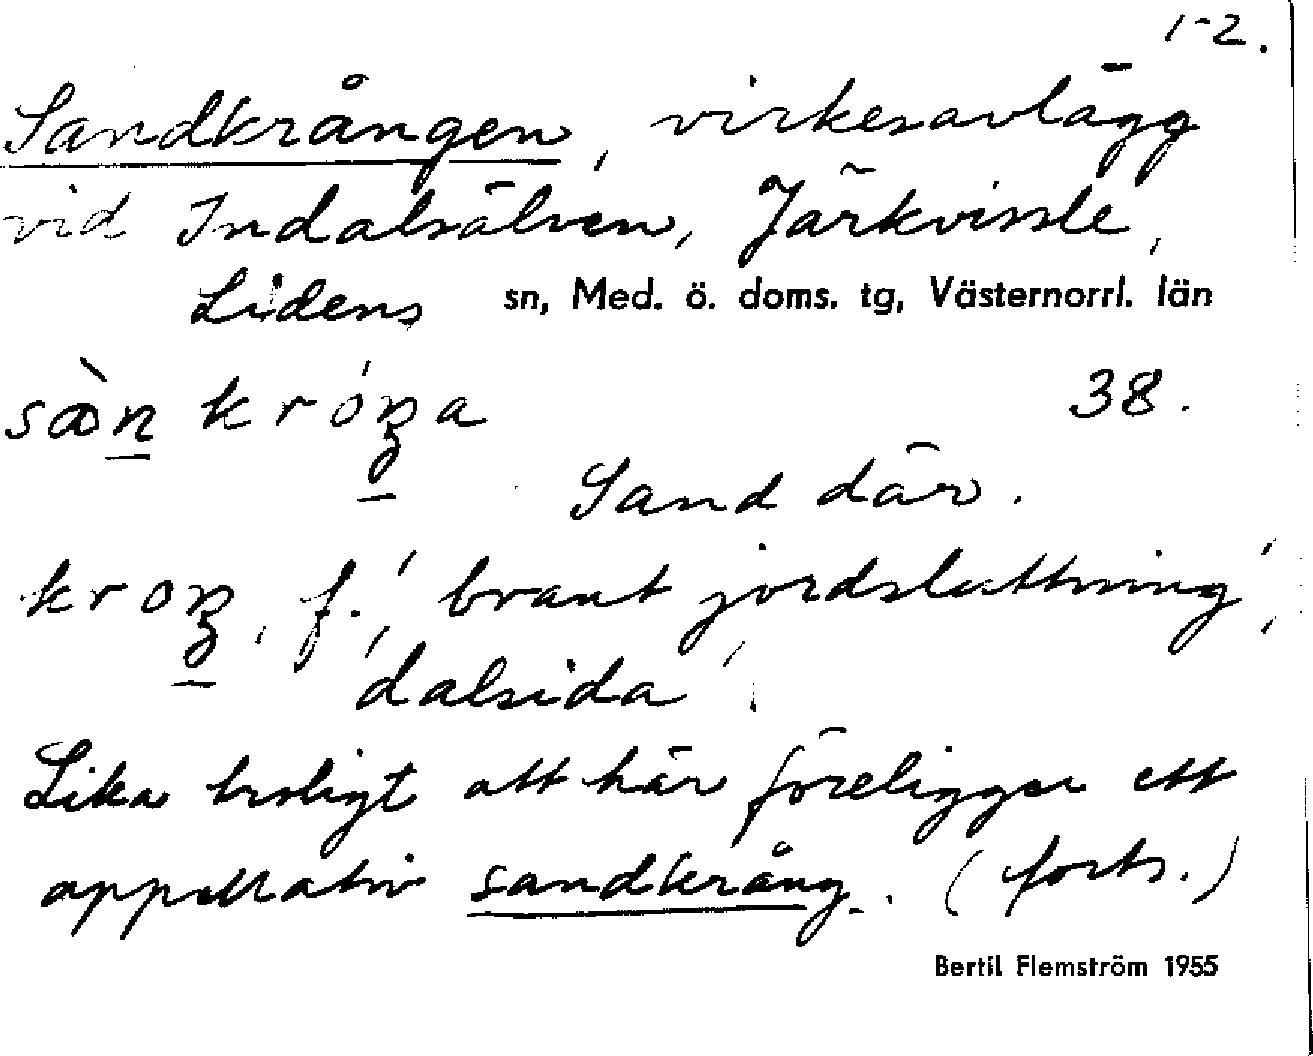 1-2.
Sandkrången, virkesavlägg
vid Indalsälven, Järkvissle,
Lidens sn, Med. ö. doms. tg, Västernorrl. län
sæ̀n króŋa 38.
Sand där.
kroŋ, f., 'brant jordsluttning',
'dalsida'.
Lika troligt att här föreligger ett
appellativ sandkrång. (forts.)
Bertil Flemström 1955